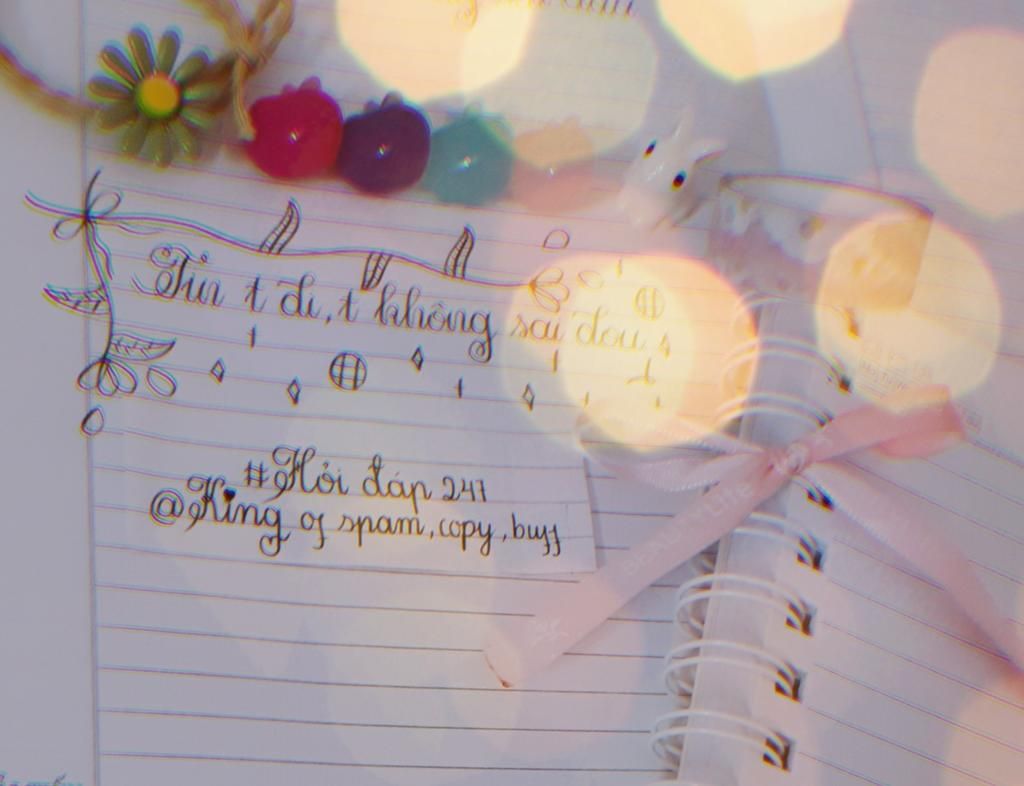 Tin t đi, t không sai đou
#Hỏi đáp 247
@King of spam, copy, buff
BEAUTYLife